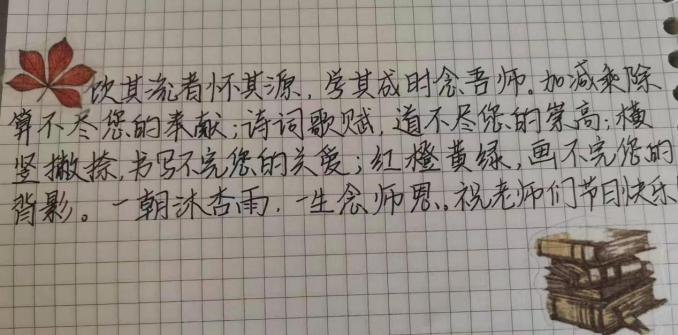 饮其流者怀其源，学其成时念吾师。加减乘除
算不尽您的奉献；诗词歌赋，道不尽您的崇高；横
竖撇捺，书写不完您的关爱；红橙黄绿，画不完您的
背影。一朝沐杏雨，一生念师恩。祝老师们节日快乐